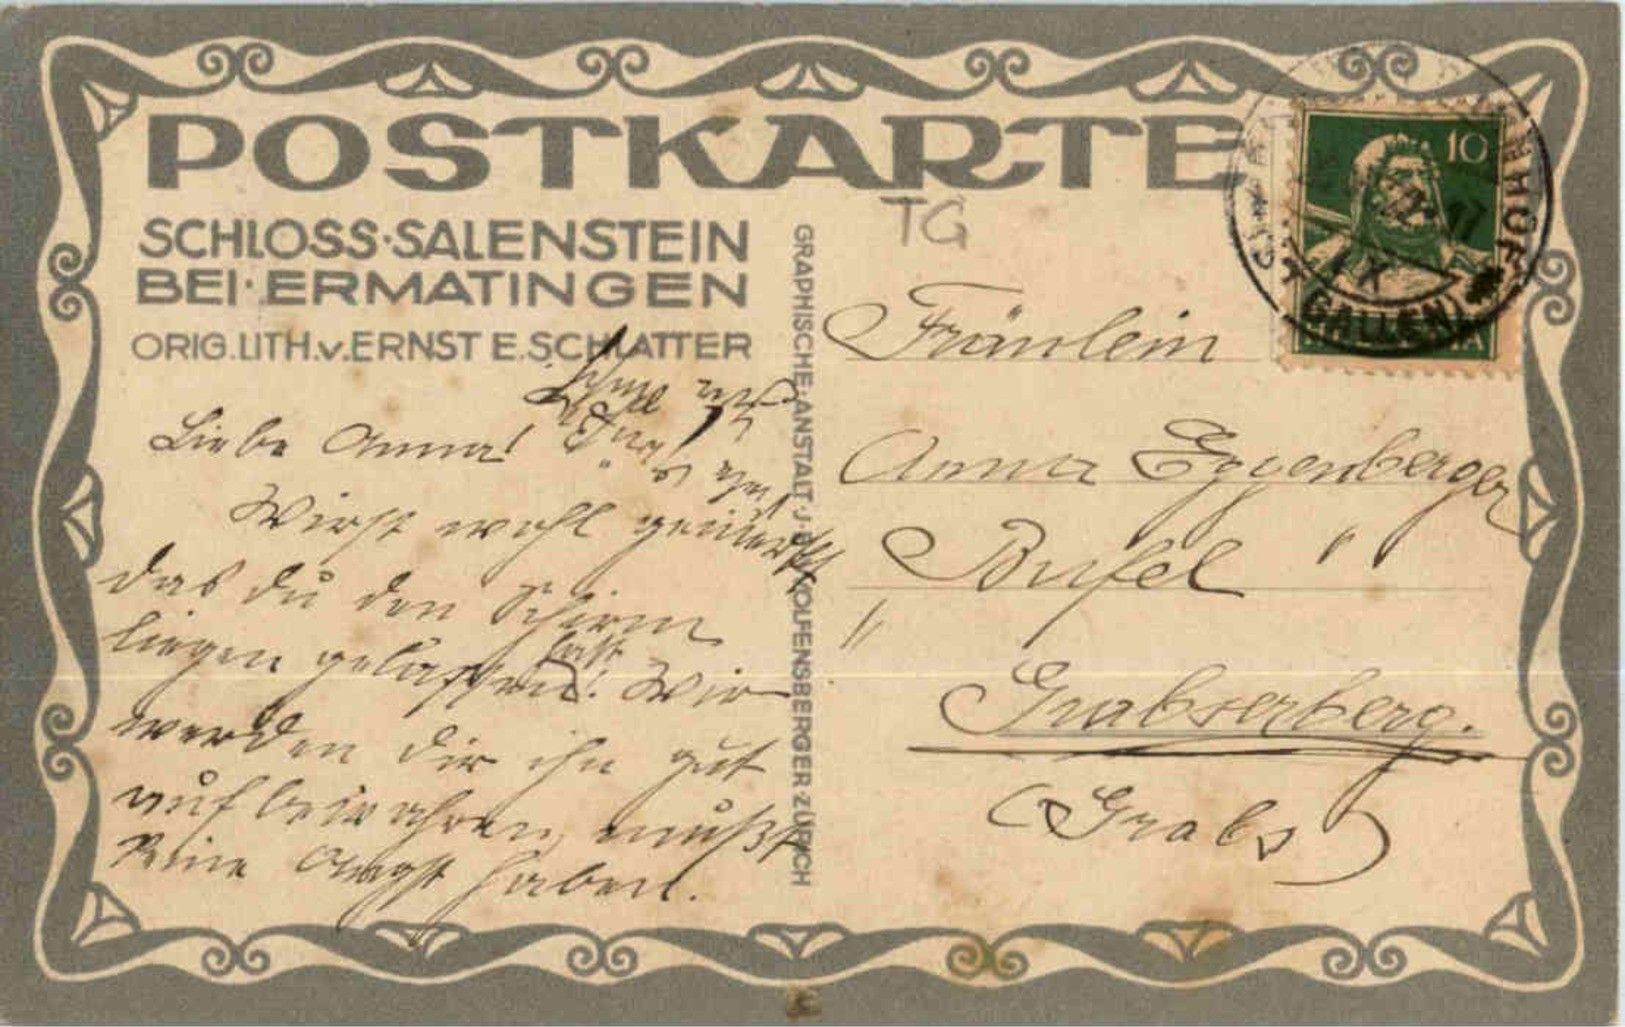 POSTKARTE
SCHLOSS·SALENSTEIN
BEI·ERMATINGEN
ORIG. LITH. v. ERNST E. SCHLATTER
GRAPHISCHE·ANSTALT·J·E·WOLFENSBERGER ZÜRICH
TG
10
HOF
(GALLEN)
Liebe Anna!
Wirst wohl gemerkt
das du den Schirm
liegen gelassen hast! Wir
werden dir ihn gut
aufbewahren, mußt
keine Angst haben.
Fräulein
Anna Eggenberger
Bufel
Grabserberg.
(Grabs)